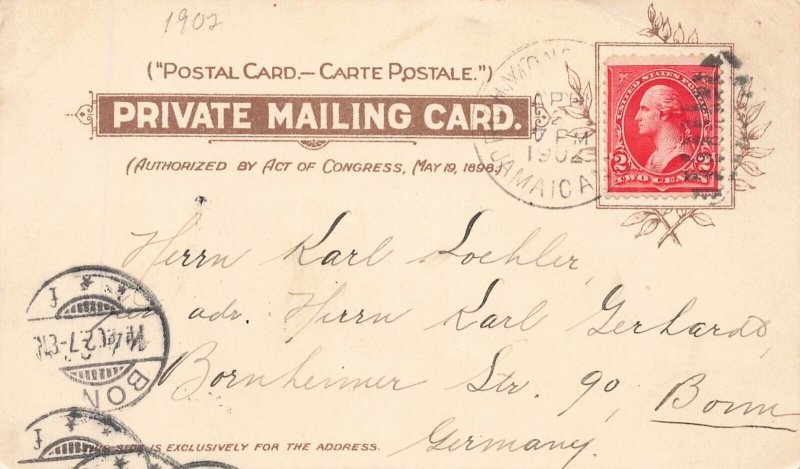 1902
("POSTAL CARD.—CARTE POSTALE.")
PRIVATE MAILING CARD.
(AUTHORIZED BY ACT OF CONGRESS, MAY 19, 1898.)
APR
2
7 PM
1902
JAMAICA
UNITED STATES POSTAGE
2 2
TWO CENTS
Herrn Karl Lochler,
per adr. Herrn Karl Gerhardt,
Bornheimer Str. 90, Bonn
Germany.
BONN
THIS SIDE IS EXCLUSIVELY FOR THE ADDRESS.